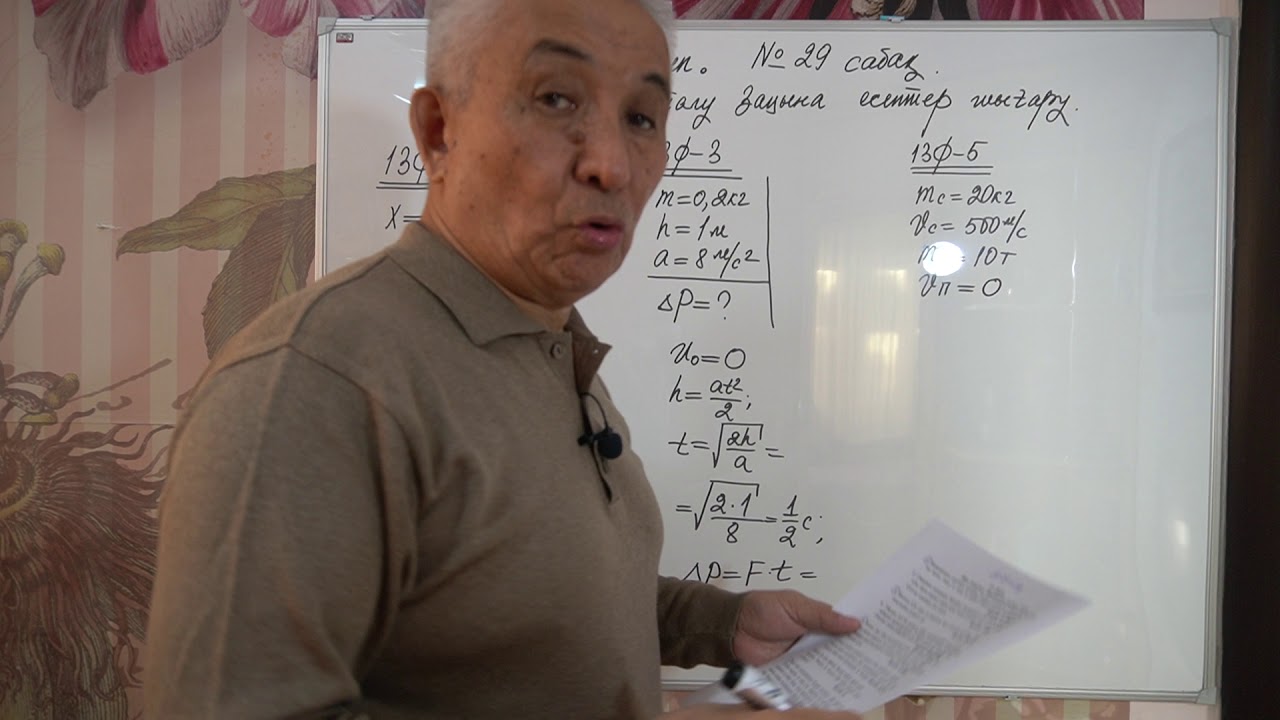 № 29 сабақ.
зацына есептер шығару.
13Ф
X=
3Ф-3
m=0,2кг
h=1м
a=8 м/с²
ΔP=?
υ₀=0
h=at²/2;
t=√(2h/a)=
=√(2·1/8)=1/2 с;
ΔP=F·t=
13Ф-5
mc=20кг
υc=500 м/с
m =10т
υп=0